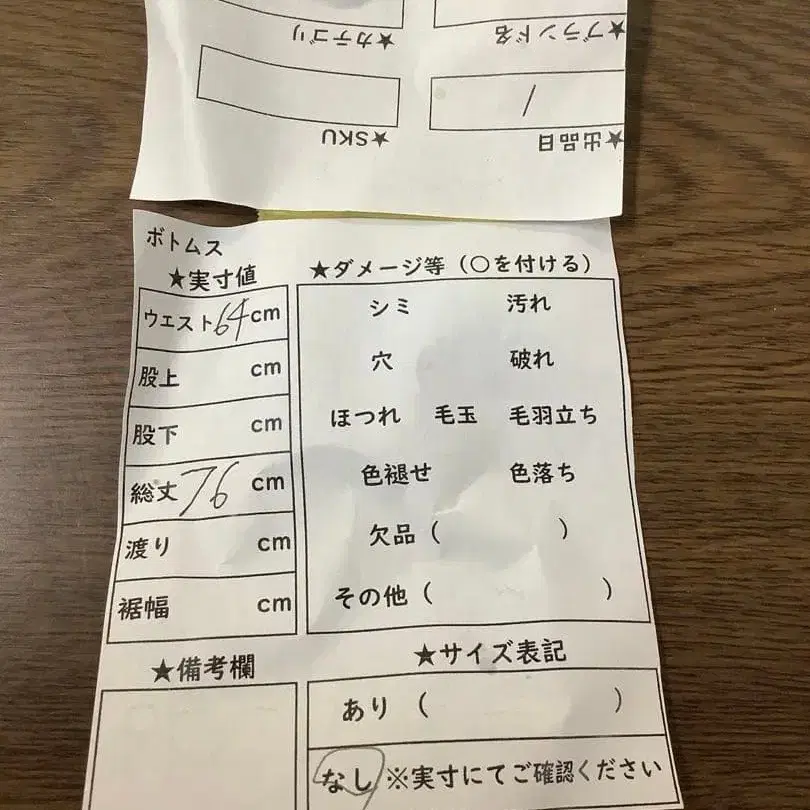 ★カテゴリ ★ブランド名
/
★SKU ★出品日
ボトムス
★実寸値
ウエスト64cm
股上 cm
股下 cm
総丈76 cm
渡り cm
裾幅 cm
★ダメージ等（○を付ける）
シミ 汚れ
穴 破れ
ほつれ 毛玉 毛羽立ち
色褪せ 色落ち
欠品（ ）
その他（ ）
★備考欄
★サイズ表記
あり（ ）
なし ※実寸にてご確認ください